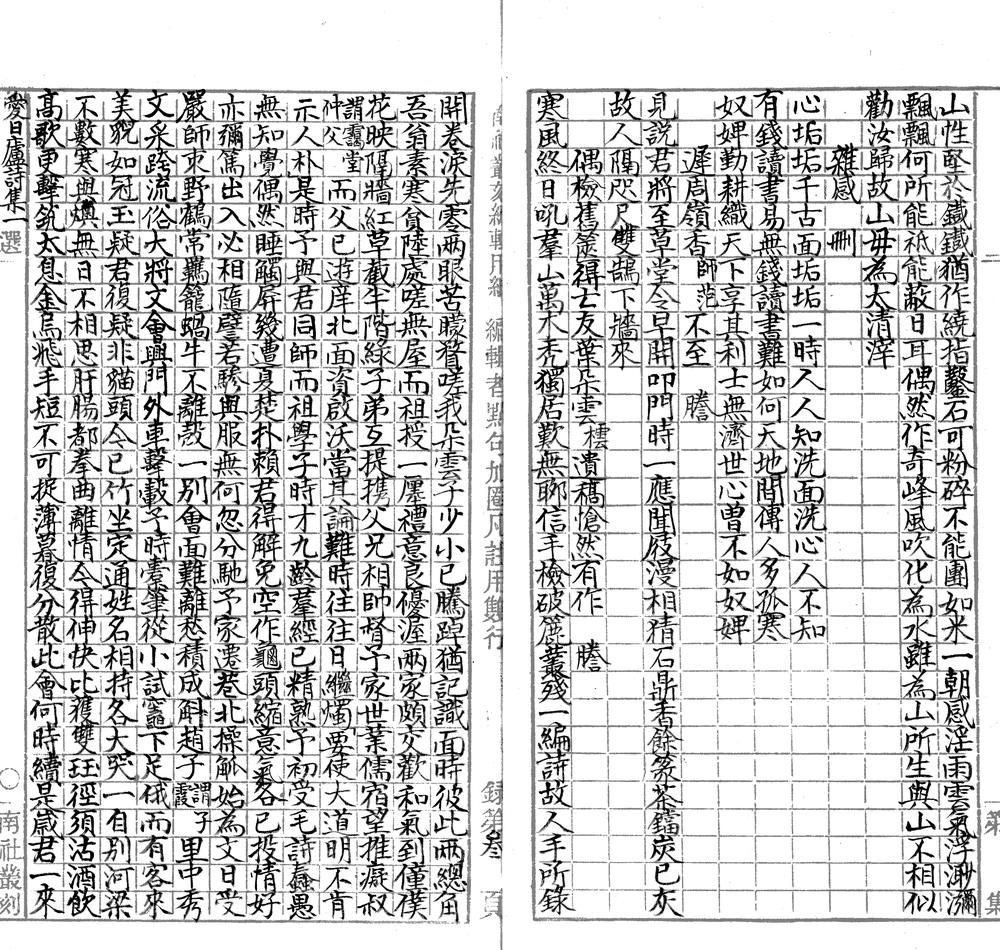 二
第
集
山性堅於鐵鐵猶作繞指鑿石可粉碎不能團如米一朝感淫雨雲氣浮渺瀰
飄飄何所能祇能蔽日耳偶然作奇峰風吹化為水雖為山所生與山不相似
勸汝歸故山毋為太清滓
雜感 刪
心垢垢千古面垢垢一時人人知洗面洗心人不知
有錢讀書易無錢讀書難如何天地間傳人多孤寒
奴婢勤耕織天下享其利士無濟世心曾不如奴婢
遲周嶺香師范不至 謄
見說君將至草堂今早開叩門時一應聞屐漫相猜石鼎香餘篆茶鐺炭已灰
故人隔咫尺雙鵲下牆來
偶檢舊篋得亡友葉朵雲樗遺稿愴然有作 謄
寒風終日吼羣山萬木禿獨居歎無聊信手檢破簏叢殘一編詩故人手所錄
南社叢刻編輯用紙 編輯者點句加圈凡註用雙行 錄第叁頁
開卷淚先零兩眼苦矇瞀嗟我朵雲子少小已騰踔猶記識面時彼此兩總角
吾翁素寒貧陸處嗟無屋而祖授一廛禮意良優渥兩家頗交歡和氣到僮僕
花映隔牆紅草截半階綠子弟互提攜父兄相師督予家世業儒宿望推癡叔
謂靄堂仲父而父已遊庠北面資啟沃當其論難時往往日繼燭要使大道明不肯
示人朴是時予與君同師而祖學予時才九齡羣經已精熟予初受毛詩蠢愚
無知覺偶然睡觸屏幾遭夏楚扑賴君得解免空作龜頭縮意氣各已投情好
亦彌篤出入必相隨璧若驂與服無何忽分馳予家遷巷北操觚始為文日受
嚴師朿野鶴常羈籠蝸牛不離殼一別會面難離愁積成斛趙子謂子靄里中秀
文采跨流俗大將文會興門外車擊轂予時橐筆從小試竈下足俄而有客來
美貌如冠玉疑君復疑非貓頭今已竹坐定通姓名相持各大哭一自別河梁
不數寒與燠無日不相思肝腸都拳曲離情今得伸快比獲雙玨徑須沽酒飲
高歌更擊筑太息金烏飛手短不可捉薄暮復分散此會何時續是歲君一來
愛日廬詩集一 選 〇 南社叢刻